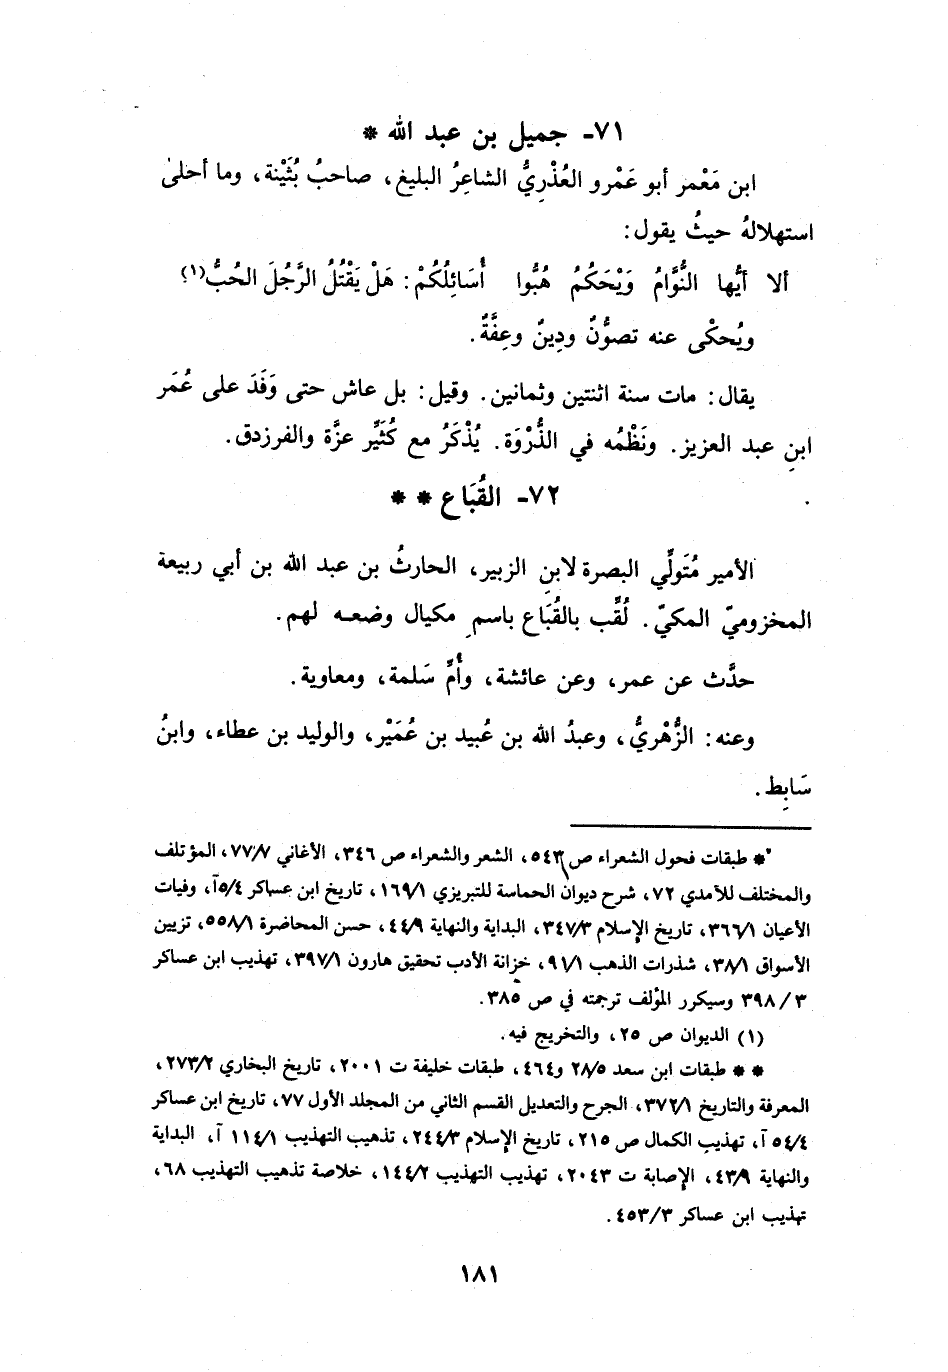 ٧١- جميل بن عبد الله *
ابن مَعْمر أبو عَمْرو العُذْرِيُّ الشاعِرُ البليغ، صاحبُ بُثَيْنة، وما أحلىٰ
استهلالهُ حيثُ يقول:
ألا أيُّها النُّوَّامُ وَيْحَكُمُ هُبُّوا أُسَائِلُكُمْ: هَلْ يَقْتُلُ الرَّجُلَ الحُبُّ(١)
ويُحكْى عنه تصوُّنٌ ودِينٌ وعِفَّةٌ.
يقال: مات سنة اثنتين وثمانين. وقيل: بل عاش حتى وَفَدَ على عُمَر
ابنِ عبد العزيز. ونَظْمُه في الذُّرْوَة. يُذْكَرُ مع كُثَيِّر عزَّة والفرزدق.
٧٢- القُبَاع * *
الأمير مُتَولِّي البصرة لابنِ الزبير، الحارثُ بن عبد الله بن أبي ربيعة
المخزوميّ المكيّ. لُقِّب بالقُبَاع باسمِ مكيال وضعه لهم.
حدَّث عن عمر، وعن عائشة، وأُمِّ سَلمة، ومعاوية.
وعنه: الزُّهْريُّ، وعبدُ الله بن عُبيد بن عُمَيْر، والوليد بن عطاء، وابنُ
سَابِط.
* طبقات فحول الشعراء ص ٥٤٣، الشعر والشعراء ص ٣٤٦، الأغاني ٧٧/٧، المؤتلف
والمختلف للآمدي ٧٢، شرح ديوان الحماسة للتبريزي ١٦٩/١، تاريخ ابن عساكر ٥/٤آ، وفيات
الأعيان ٣٦٦/١، تاريخ الإسلام ٣٤٧/٣، البداية والنهاية ٤٤/٩، حسن المحاضرة ٥٥٨/١، تزيين
الأسواق ٣٨/١، شذرات الذهب ٩١/١، خزانة الأدب تحقيق هارون ٣٩٧/١، تهذيب ابن عساكر
٣٩٨/٣ وسيكرر المؤلف ترجمته في ص ٣٨٥.
(١) الديوان ص ٢٥، والتخريج فيه.
* * طبقات ابن سعد ٢٨/٥ و٤٦٤، طبقات خليفة ت ٢٠٠١، تاريخ البخاري ٢٧٣/٢،
المعرفة والتاريخ ٣٧٢/١، الجرح والتعديل القسم الثاني من المجلد الأول ٧٧، تاريخ ابن عساكر
٥٤/٤ آ، تهذيب الكمال ص ٢١٥، تاريخ الإسلام ٢٤٤/٣، تذهيب التهذيب ١١٤/١ آ، البداية
والنهاية ٤٣/٩، الإصابة ت ٢٠٤٣، تهذيب التهذيب ١٤٤/٢، خلاصة تذهيب التهذيب ٦٨،
تهذيب ابن عساكر ٤٥٣/٣.
١٨١